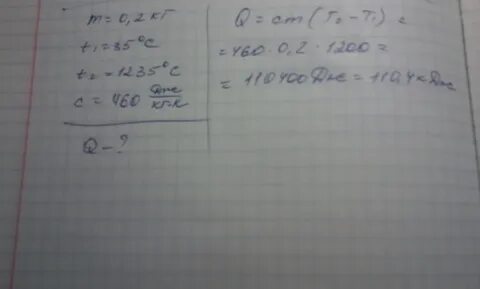 m = 0,2 кг
t₁ = 35°C
t₂ = 1235°C
c = 460 Дж/кг·К
Q – ?
Q = cm(T₂ – T₁) =
= 460 · 0,2 · 1200 =
= 110400 Дж = 110,4 кДж